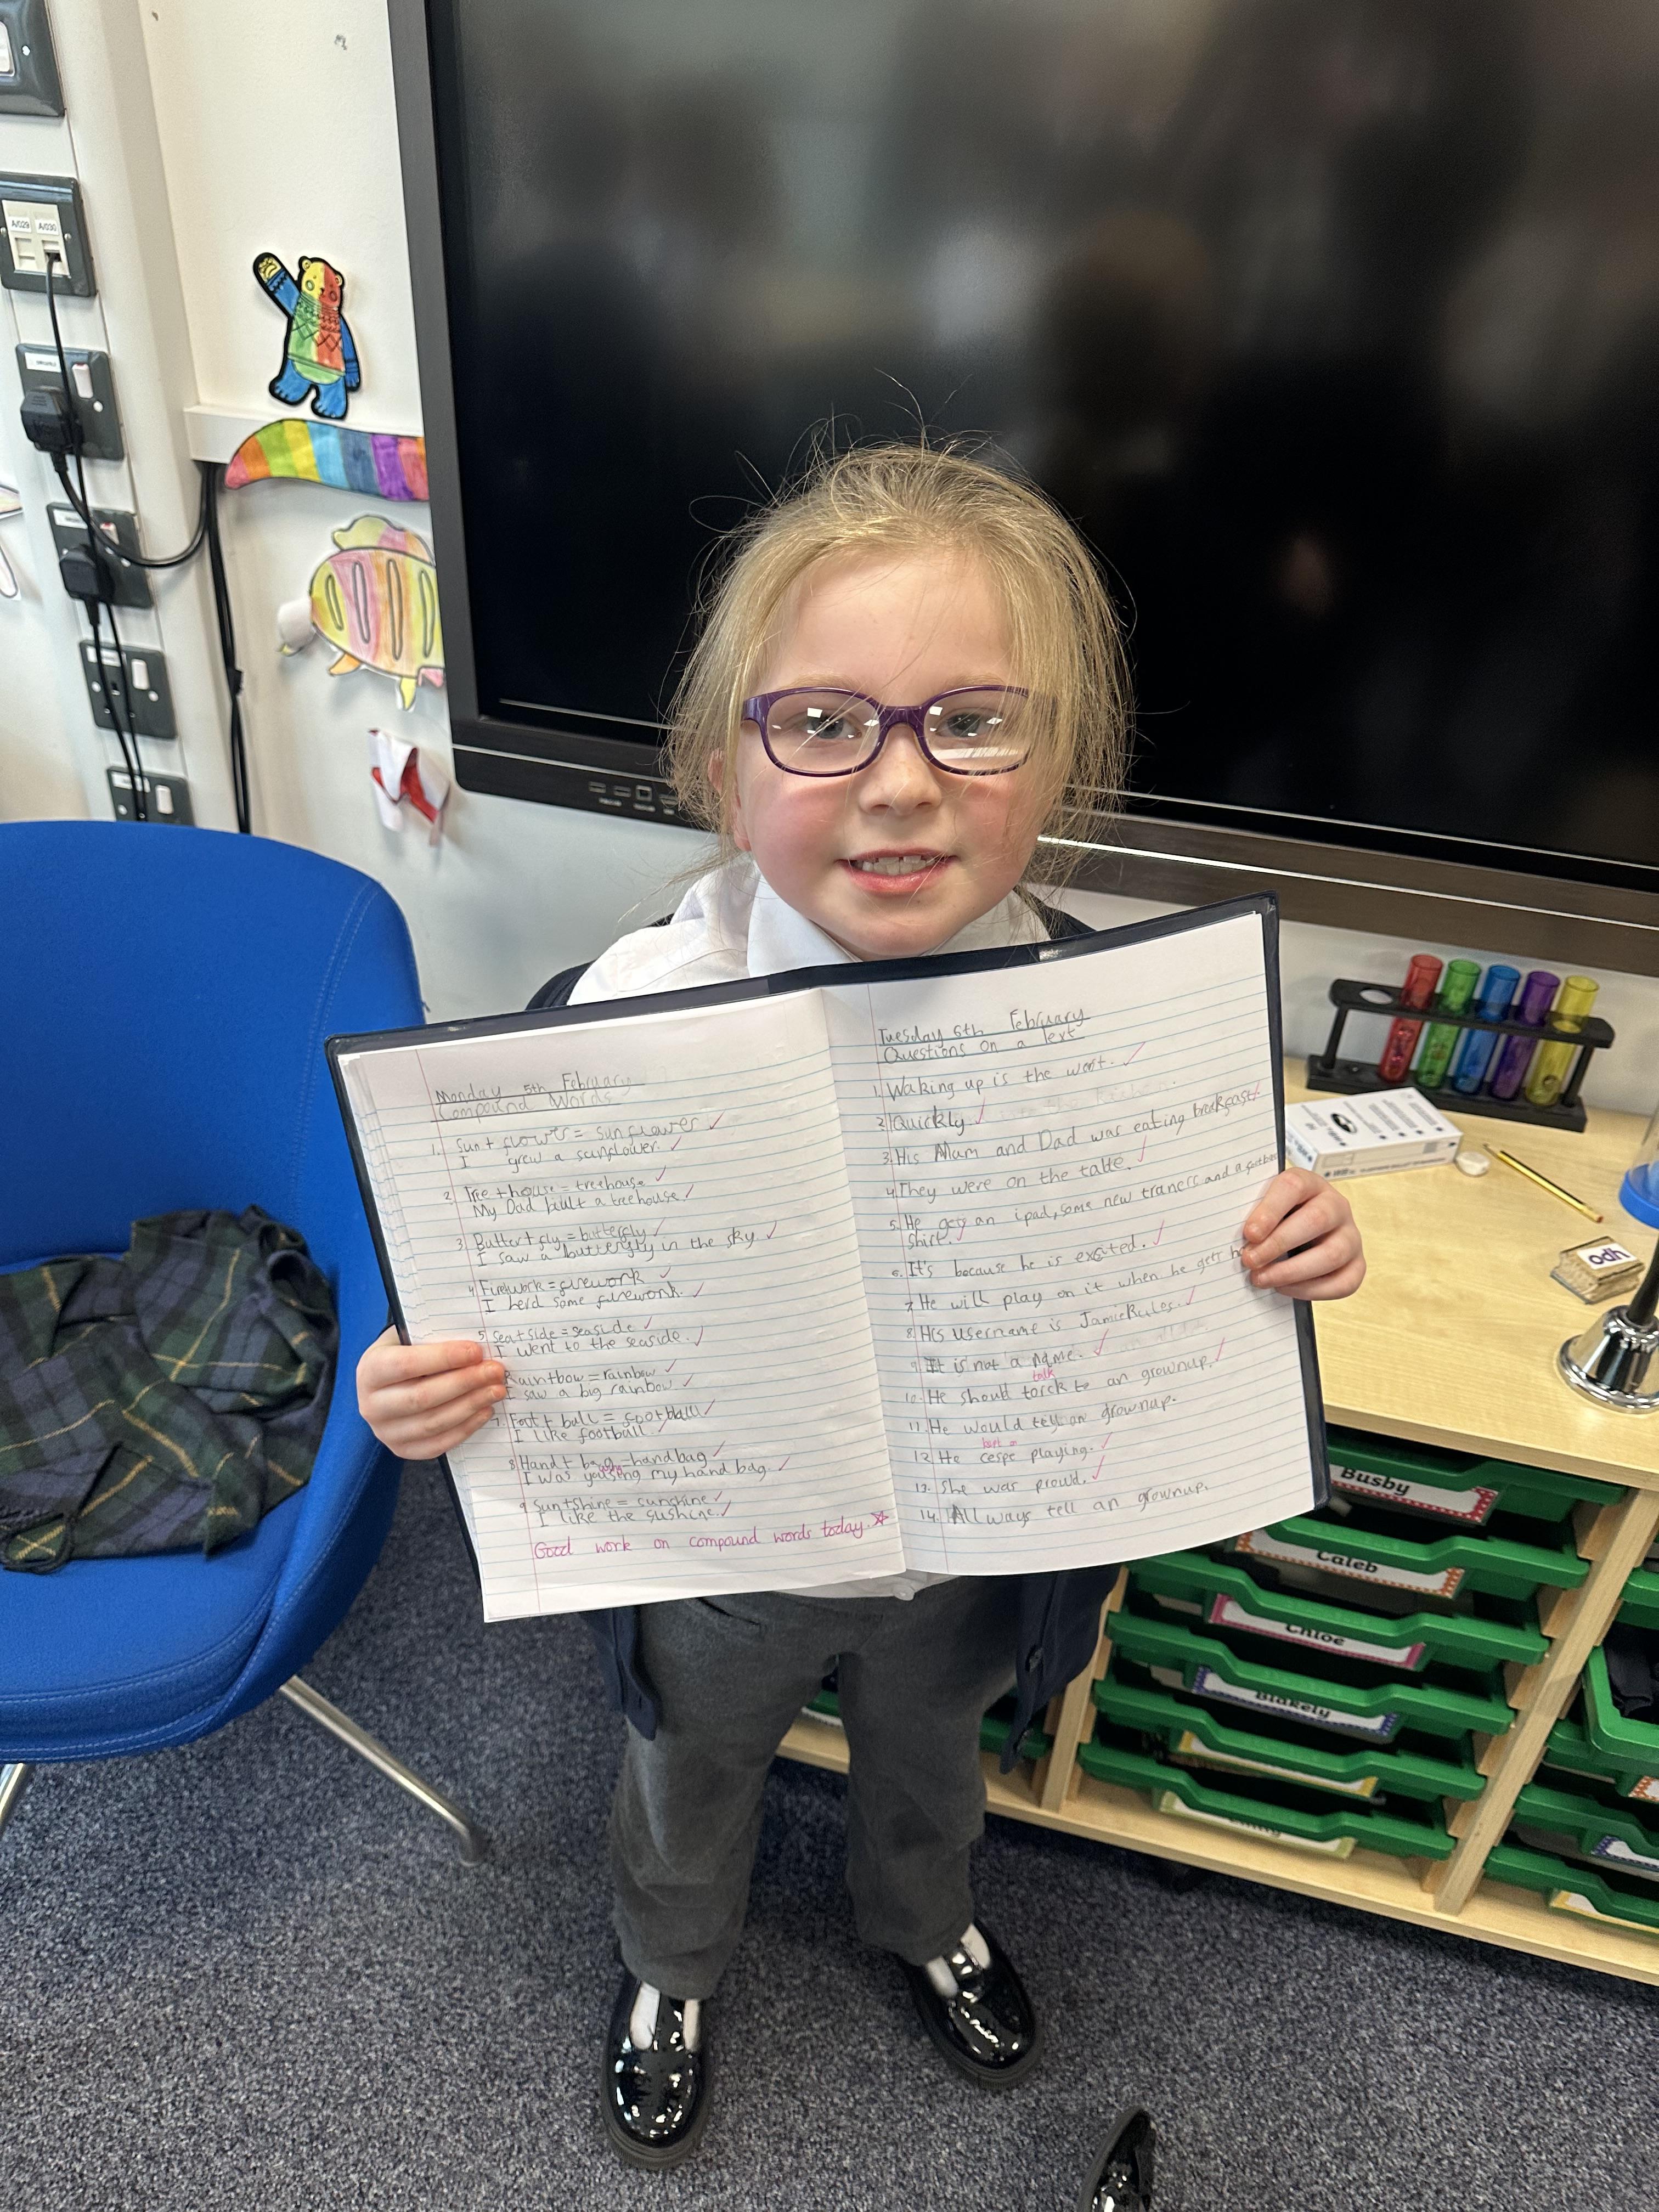 A/029 A/030
Monday 5th February
Compound Words
1. Sun + flower = sunflower
I grew a sunflower.
2 Tree + house = treehouse
My Dad built a treehouse
3 Butter + fly = butterfly
I saw a butterfly in the sky
4 Fire work = firework
I herd some firework.
5 Sea + side = seaside
I went to the seaside.
Rain + bow = rainbow
I saw a big rainbow
7. Foot + ball = football
I like football.
8 Hand + bag = hand bag
I was my hand bag
9 Sun + shine = sunshine
I like the sushine.
Good work on compound words today.
Tuesday 6th February
Questions on a text
1. Waking up is the worst.
2. Quickly
3. His Mum and Dad was eating breakfast
4. They were on the table.
5. He gets an ipad, some new traners and a
shirt.
6. It's because he is excited.
7. He will play on it when he gets
8. His username is JamieRules.
9. It is not a name.
talk
10. He should torck to an grownup.
11. He would tell an grownup.
12. He cespe playing.
13. She was proud.
14. All ways tell an grownup.
Busby
Caleb
Chloe
Blakely